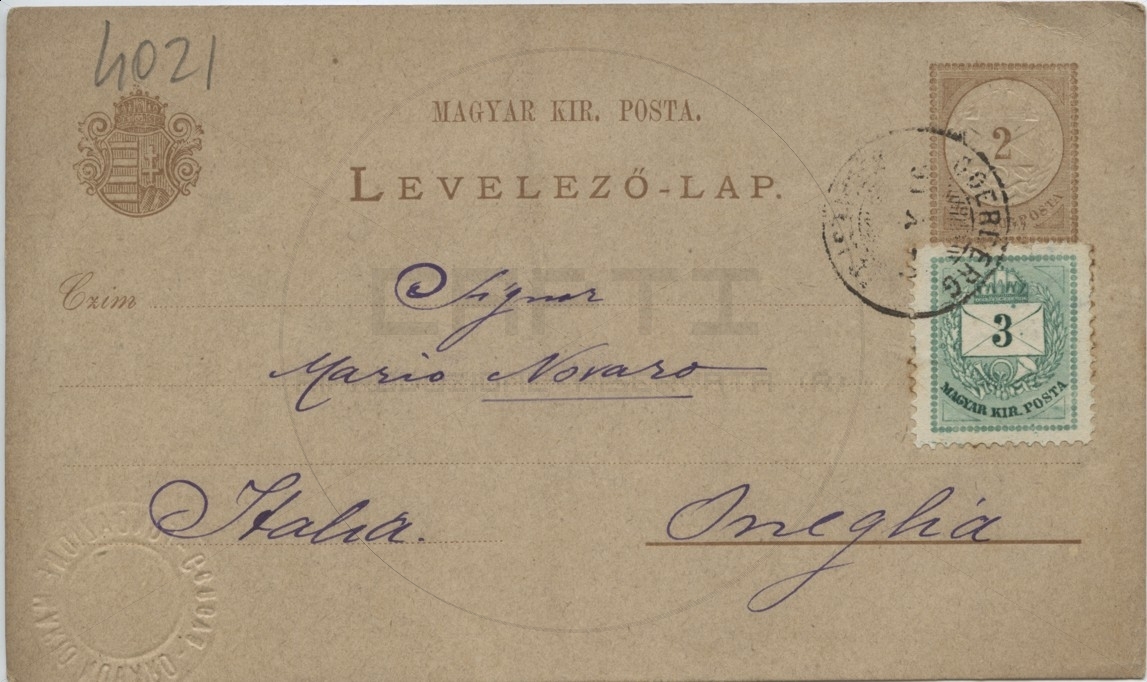 4021
MAGYAR KIR. POSTA.
LEVELEZŐ-LAP.
2
Czim
Signor
3
MAGYAR KIR. POSTA
Mario Novaro
Italia.
Oneglia